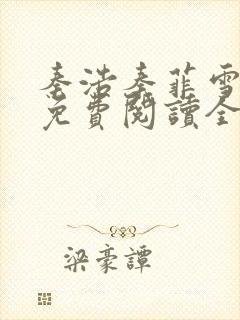 秦浩秦菲雪
免費閱讀全
梁豪譚